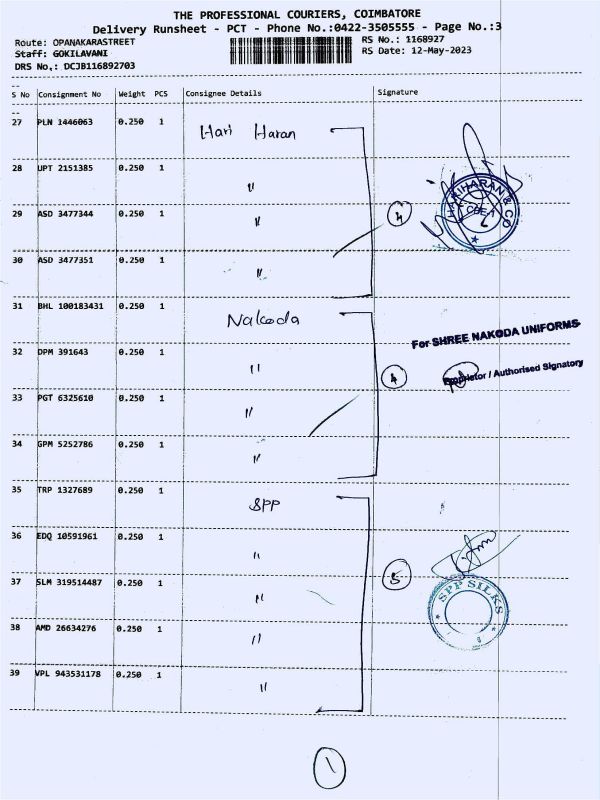 THE PROFESSIONAL COURIERS, COIMBATORE
Delivery Runsheet - PCT - Phone No.:0422-3505555 - Page No.:3
Route: OPANAKARASTREET RS No.: 1168927
Staff: GOKILAVANI RS Date: 12-May-2023
DRS No,: DCJB116892703
--
S No Consignment No Weight PCS Consignee Details Signature
--
27 PLN 1446063 0.250 1 Hari Haran
28 UPT 2151385 0.250 1 "
29 ASD 3477344 0.250 1 "
4
HARIHARAN & CO
CBE-1
30 ASD 3477351 0.250 1 "
31 BHL 100183431 0.250 1 Nakoda
For SHREE NAKODA UNIFORMS
32 DPM 391643 0.250 1 "
4
Proprietor / Authorised Signatory
33 PGT 6325610 0.250 1 "
34 GPM 5252786 0.250 1 "
35 TRP 1327689 0.250 1 SPP
36 EDQ 10591961 0.250 1 "
37 SLM 319514487 0.250 1 "
5
SPP SILKS
38 AMD 26634276 0.250 1 "
39 VPL 943531178 0.250 1 "
1